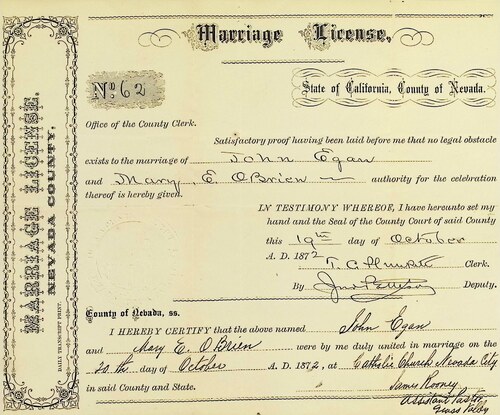 Marriage License,
No. 62
State of California, County of Nevada.
Office of the County Clerk.
Satisfactory proof having been laid before me that no legal obstacle
exists to the marriage of John Egan
and Mary E. O'Brien authority for the celebration
thereof is hereby given.
IN TESTIMONY WHEREOF, I have hereunto set my
hand and the Seal of the County Court of said County
this 19th day of October
A. D. 1872
T. C. Plunkett Clerk.
By Jno Pattison Deputy.
County of Nevada, ss.
I HEREBY CERTIFY that the above named John Egan
and Mary E. O'Brien were by me duly united in marriage on the
20th day of October A. D. 1872, at Catholic Church Nevada City
in said County and State. James Rooney
Assistant Pastor
Grass Valley
MARRIAGE LICENSE.
NEVADA COUNTY.
DAILY TRANSCRIPT PRINT.